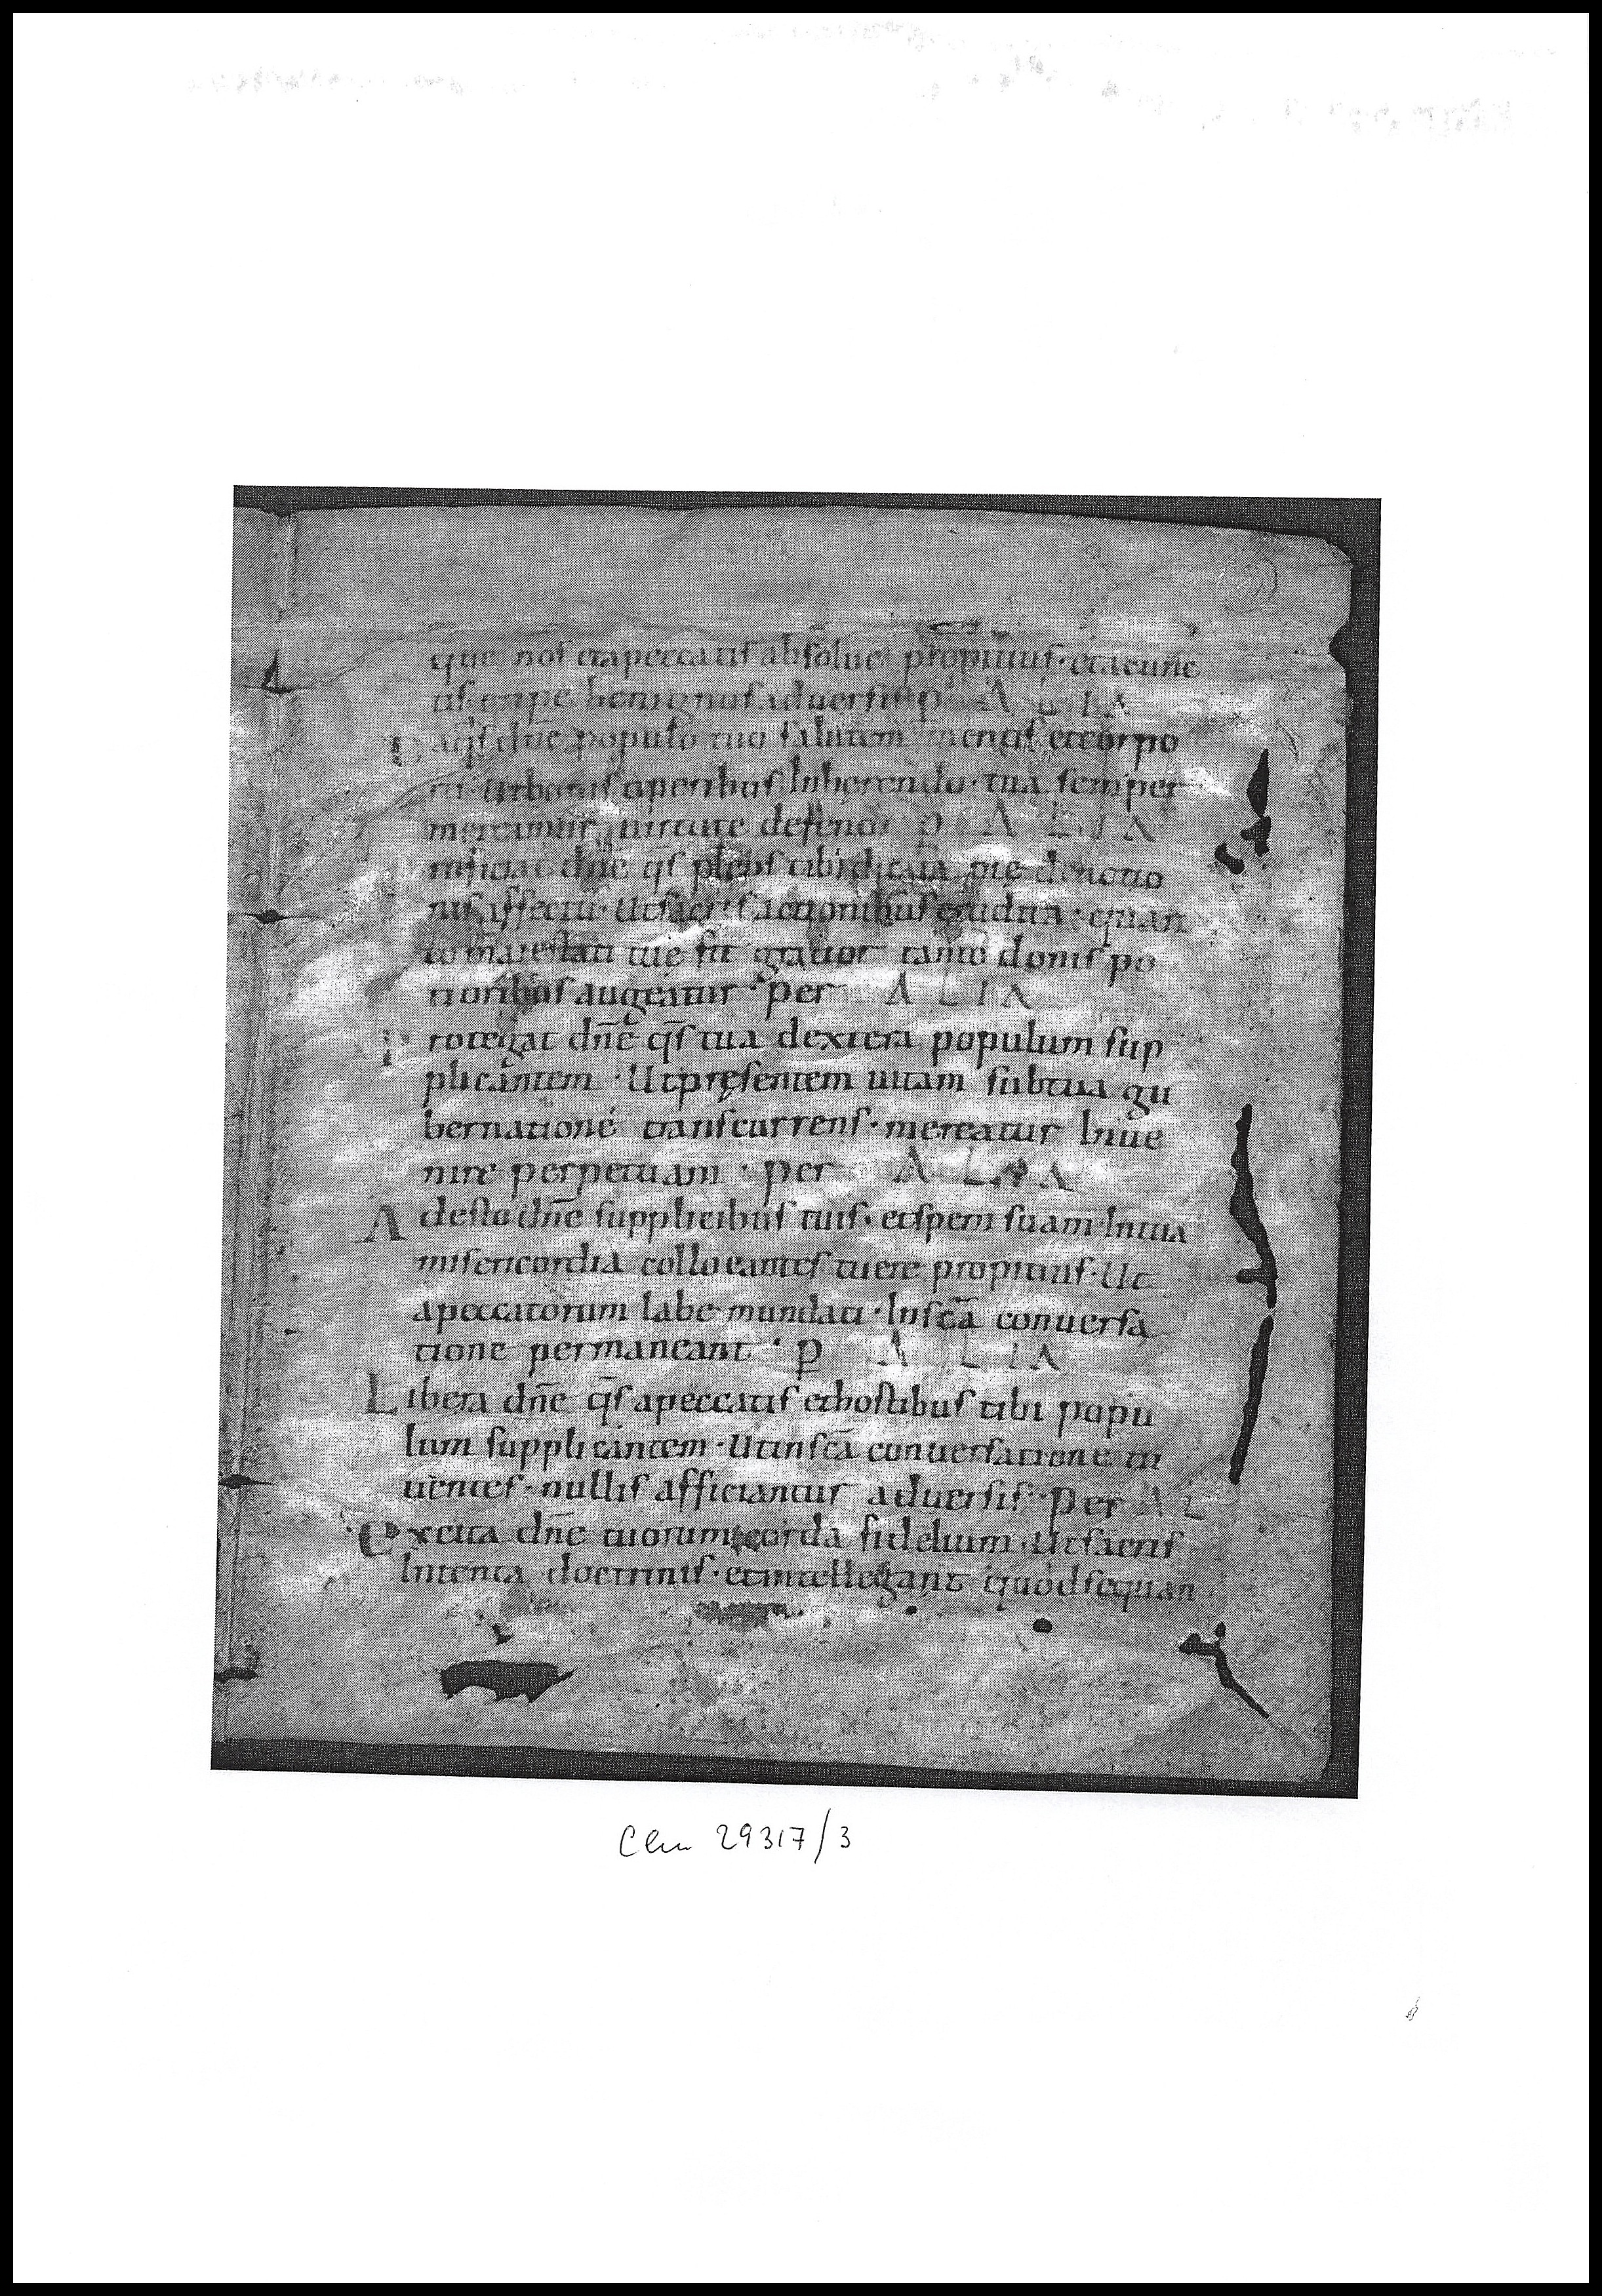 que nos et apeccatis absolue propitius · et acunc
tis eripe benignus aduersis p̄ ALIA
Da q̄s dn̄e populo tuo salutem mentis et corpo
ris · Ut bonis operibus Inherendo · tua semper
mereamur uirtute defendi p̄ ALIA
dn̄e q̄s plebs tibi dicata pie deuotio
nis affectu · Ut sacris actionibus erudita · quan
to maiestati tuę fit gratior tanto donis po
tioribus augeatur · per ALIA
Protegat dn̄e q̄s tua dextera populum sup
plicantem · Ut pręsentem uitam sub tua gu
bernatione transcurrens · mereatur Inue
nire perpetuam · per ALIA
Adesto dn̄e supplicibus tuis · et spem suam Intua
misericordia collocantes tuere propitius · Ut
apeccatorum labe mundati · Insc̄a conuersa
tione permaneant · p̄ ALIA
Libera dn̄e q̄s apeccatis et hostibus tibi popu
lum supplicantem · Ut insc̄a conuersatione ui
uentes · nullis afficiantur aduersis · per AL
Excita dn̄e tuorum corda fidelium · Ut sacris
Intenta doctrinis · et intellegant quod sequan
Clm 29317/3